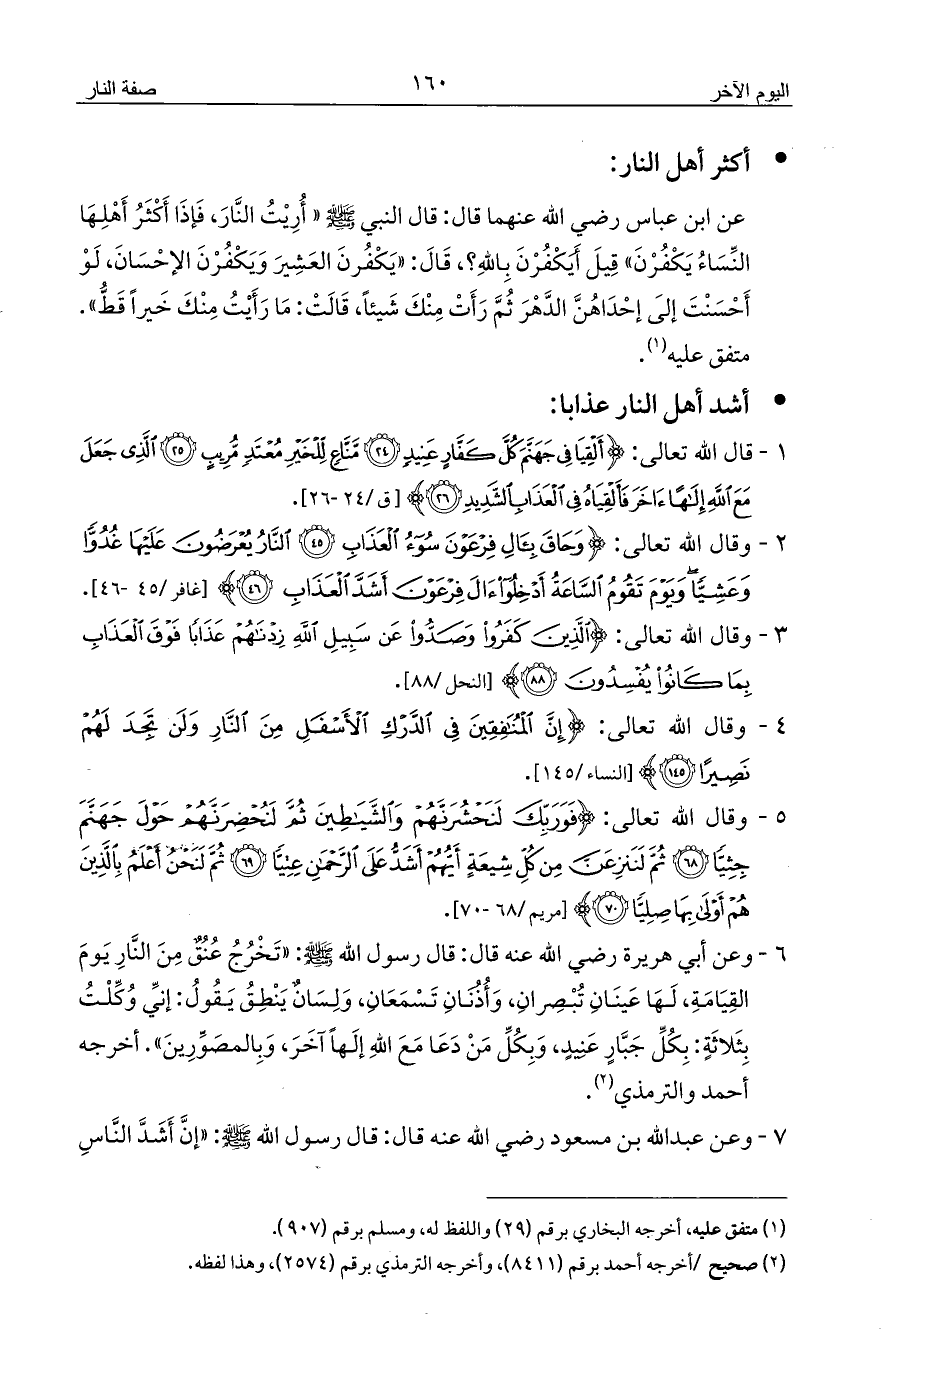 اليوم الآخر
١٦٠
صفة النار
• أكثر أهل النار:
عن ابن عباس رضي الله عنهما قال: قال النبي ﷺ « أُرِيْتُ النَّارَ، فَإذَا أكْثَرُ أهْلِهَا
النِّسَاءُ يَكْفُرْنَ» قِيلَ أيَكْفُرْنَ بِاللهِ؟، قَالَ: «يَكْفُرنَ العَشِيرَ وَيَكْفُرْنَ الإحْسَانَ، لَوْ
أحْسَنْتَ إلَى إحْدَاهُنَّ الدَّهْرَ ثُمَّ رَأتْ مِنْكَ شَيئاً، قَالَتْ: مَا رَأيْتُ مِنْكَ خَيراً قَطُّ».
متفق عليه(١).
• أشد أهل النار عذابا:
١ - قال الله تعالى: ﴿أَلْقِيَا فِي جَهَنَّمَ كُلَّ كَفَّارٍ عَنِيدٍ ٢٤ مَّنَّاعٍ لِّلْخَيْرِ مُعْتَدٍ مُّرِيبٍ ٢٥ ٱلَّذِى جَعَلَ
مَعَ ٱللَّهِ إِلَٰهًا ءَاخَرَ فَأَلْقِيَاهُ فِى ٱلْعَذَابِ ٱلشَّدِيدِ ٢٦﴾ [ق/٢٤ -٢٦].
٢ - وقال الله تعالى: ﴿وَحَاقَ بِـَٔالِ فِرْعَوْنَ سُوٓءُ ٱلْعَذَابِ ٤٥ ٱلنَّارُ يُعْرَضُونَ عَلَيْهَا غُدُوًّا
وَعَشِيًّا وَيَوْمَ تَقُومُ ٱلسَّاعَةُ أَدْخِلُوٓا۟ ءَالَ فِرْعَوْنَ أَشَدَّ ٱلْعَذَابِ ٤٦﴾ [غافر/٤٥ -٤٦].
٣ - وقال الله تعالى: ﴿ٱلَّذِينَ كَفَرُوا۟ وَصَدُّوا۟ عَن سَبِيلِ ٱللَّهِ زِدْنَٰهُمْ عَذَابًا فَوْقَ ٱلْعَذَابِ
بِمَا كَانُوا۟ يُفْسِدُونَ ٨٨﴾ [النحل/٨٨].
٤ - وقال الله تعالى: ﴿إِنَّ ٱلْمُنَٰفِقِينَ فِى ٱلدَّرْكِ ٱلْأَسْفَلِ مِنَ ٱلنَّارِ وَلَن تَجِدَ لَهُمْ
نَصِيرًا ١٤٥﴾ [النساء/١٤٥].
٥ - وقال الله تعالى: ﴿فَوَرَبِّكَ لَنَحْشُرَنَّهُمْ وَٱلشَّيَٰطِينَ ثُمَّ لَنُحْضِرَنَّهُمْ حَوْلَ جَهَنَّمَ
جِثِيًّا ٦٨ ثُمَّ لَنَنزِعَنَّ مِن كُلِّ شِيعَةٍ أَيُّهُمْ أَشَدُّ عَلَى ٱلرَّحْمَٰنِ عِتِيًّا ٦٩ ثُمَّ لَنَحْنُ أَعْلَمُ بِٱلَّذِينَ
هُمْ أَوْلَىٰ بِهَا صِلِيًّا ٧٠﴾ [مريم/٦٨ -٧٠].
٦ - وعن أبي هريرة رضي الله عنه قال: قال رسول الله ﷺ: «تَخْرُجُ عُنُقٌ مِنَ النَّارِ يَومَ
القِيَامَةِ، لَهَا عَينَانِ تُبْصِرانِ، وَأُذُنَانِ تَسْمَعَانِ، وَلِسَانٌ يَنْطِقُ يَقُولُ: إنِّي وُكِّلْتُ
بِثَلاثَةٍ: بِكُلِّ جَبَّارٍ عَنِيدٍ، وَبِكُلِّ مَنْ دَعَا مَعَ اللهِ إلَهاً آخَرَ، وَبِالمصَوِّرِينَ». أخرجه
أحمد والترمذي(٢).
٧ - وعن عبدالله بن مسعود رضي الله عنه قال: قال رسول الله ﷺ: «إنَّ أشَدَّ النَّاسِ
(١) متفق عليه، أخرجه البخاري برقم (٢٩) واللفظ له، ومسلم برقم (٩٠٧).
(٢) صحيح /أخرجه أحمد برقم (٨٤١١)، وأخرجه الترمذي برقم (٢٥٧٤)، وهذا لفظه.